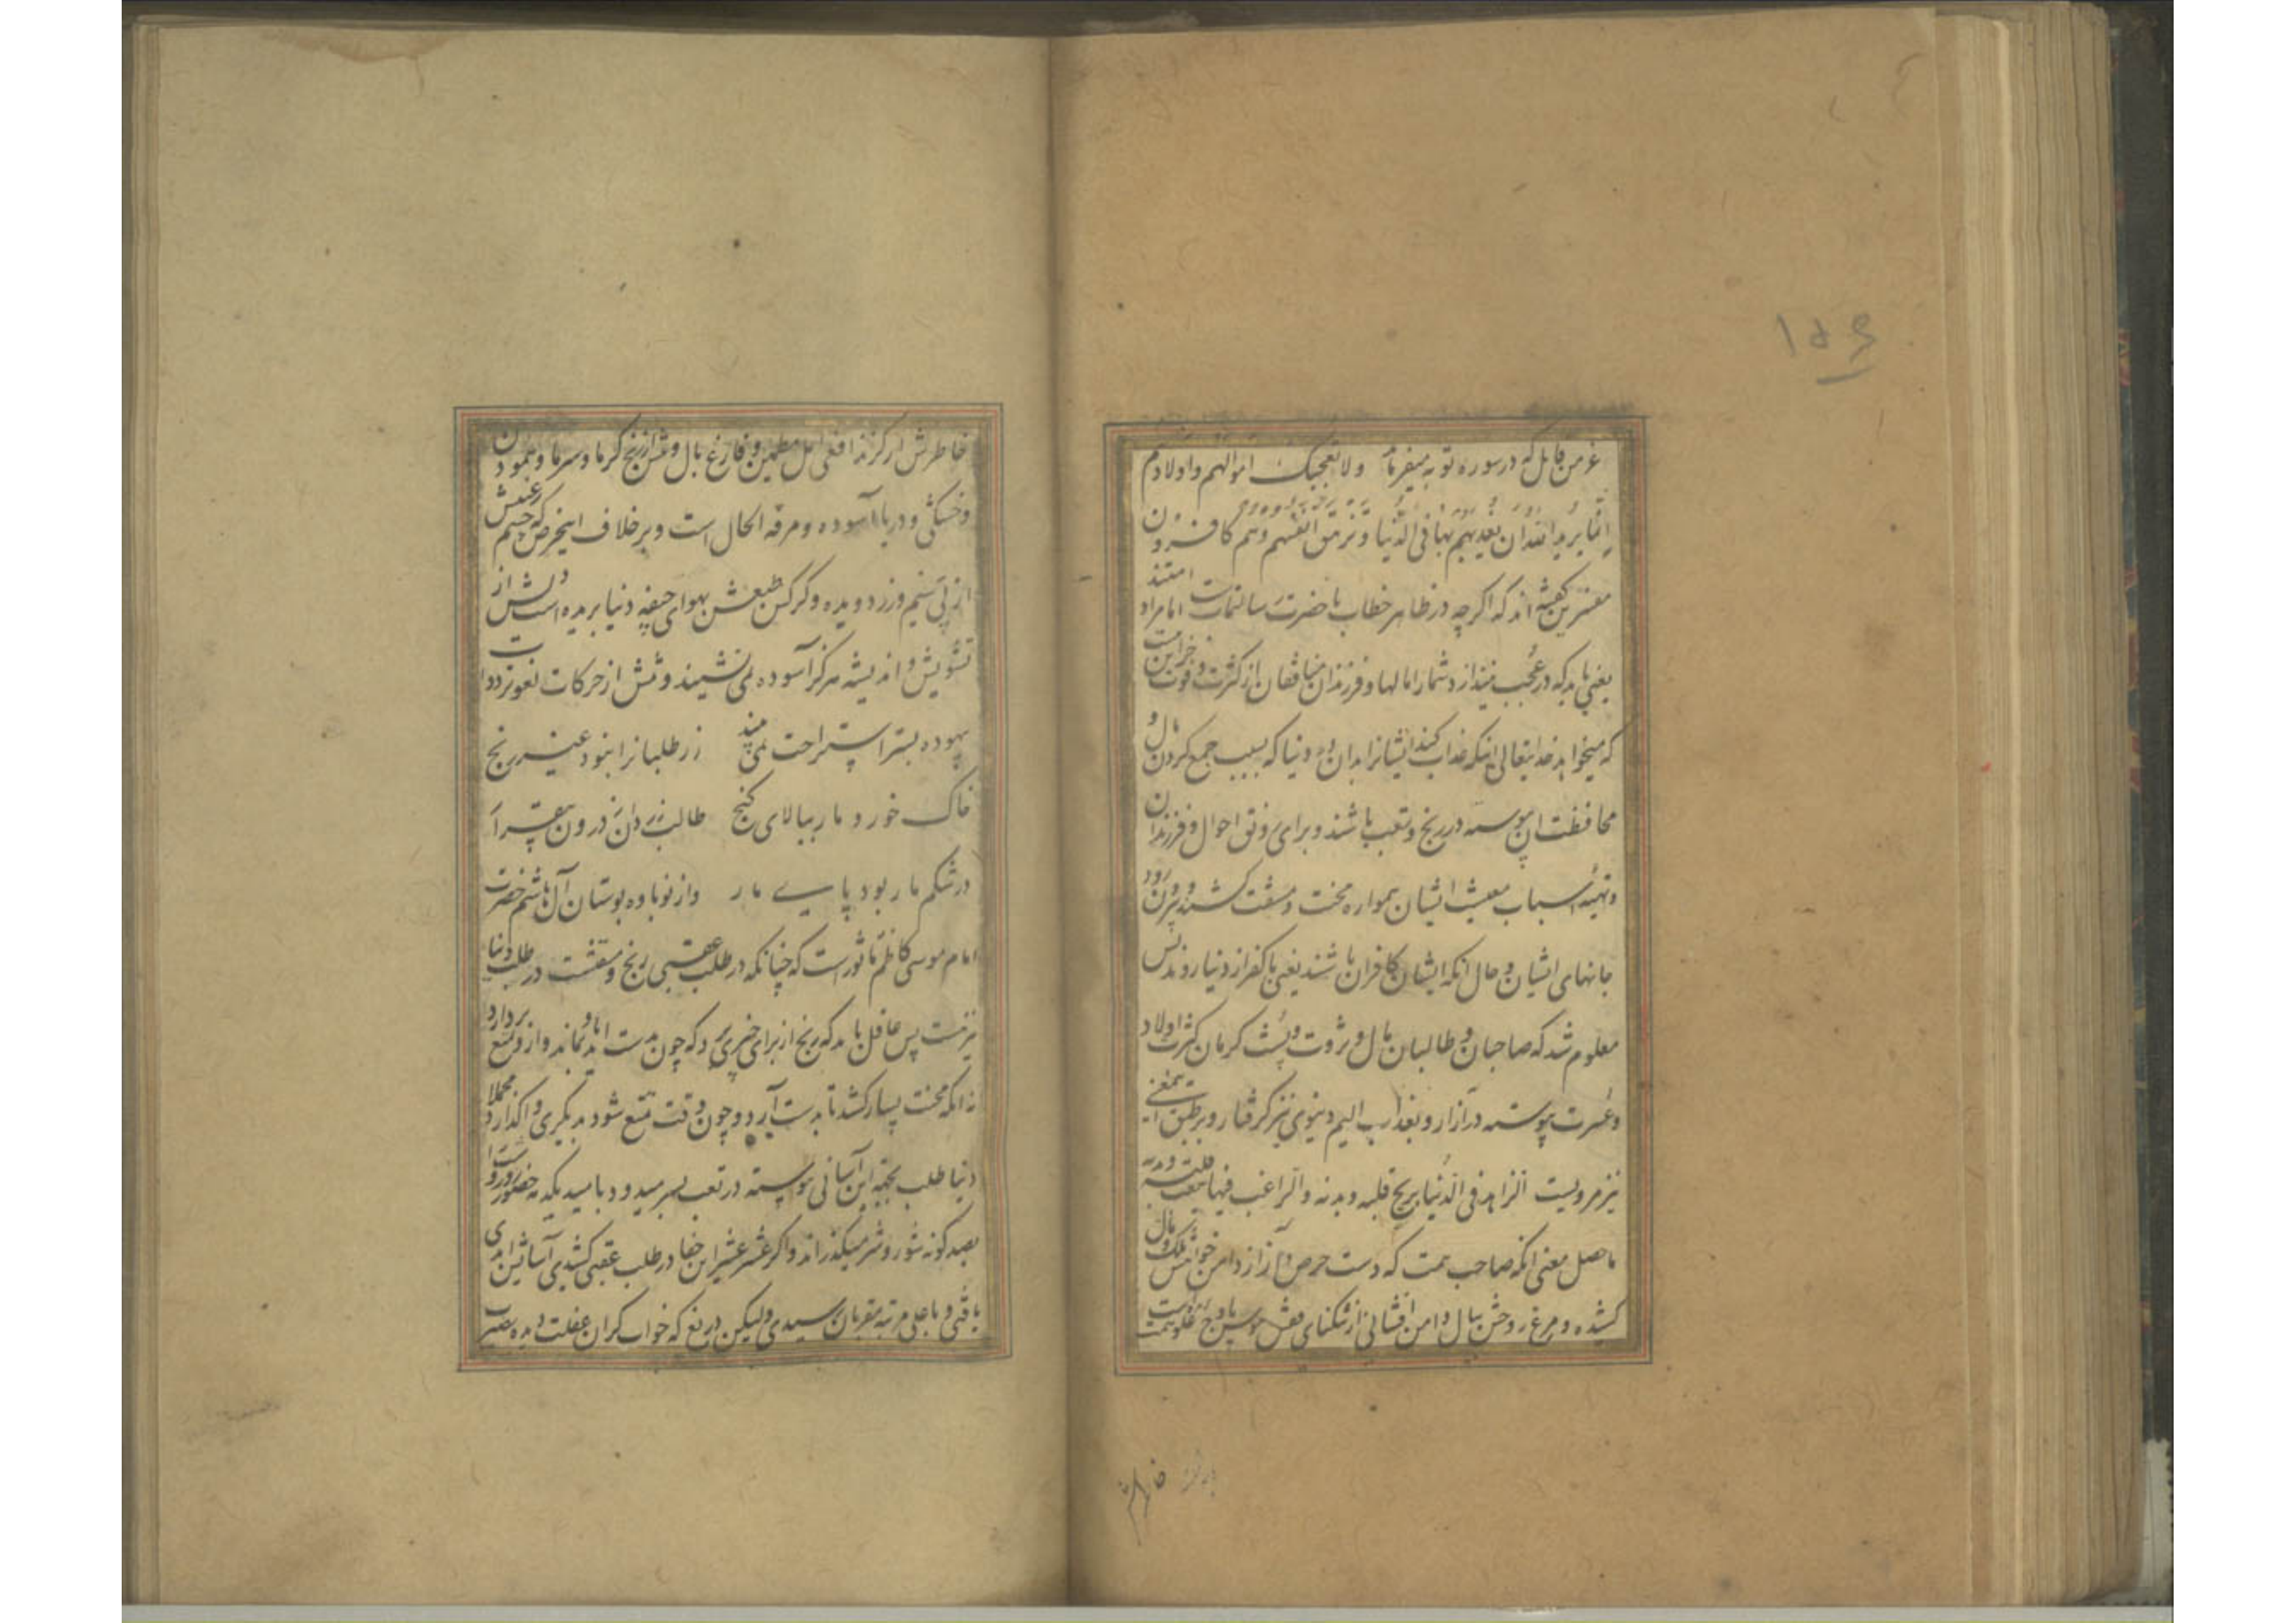 ۱۵۶
عز من قایل که در سوره توبه میفرماید ولا تعجبک اموالهم و اولادهم
انما یرید الله ان یعذبهم بها فی الدنیا و تزهق انفسهم و هم کافرون
مفسرین گفته اند که اگرچه در ظاهر خطاب با حضرت رسالتمآبست اما مراد امتند
یعنی باید که در عجب نیندازد شما را مالها و فرزندان منافقان از کثرت و قوت جز این نیست
که میخواهد خدایتعالی اینکه عذاب کند ایشانرا بدان در دنیا که بسبب جمع کردن مال و
محافظت آن پیوسته در رنج و تعب باشند و برای رونق احوال و فرزندان
و تهیه اسباب معیشت ایشان همواره محنت و مشقت کشند و بیرون رود
جانهای ایشان و حال آنکه ایشان کافران باشند یعنی با کفر از دنیا روند پس
معلوم شد که صاحبان و طالبان مال و ثروت و پشت گرمان کثرت اولاد
و عشرت پیوسته در آزار و بعذاب الیم دنیوی نیز گرفتار و بر طبق این معنی
نیز مرویست الزاهد فی الدنیا یریح قلبه و بدنه و الراغب فیها یتعب قلبه و بدنه
ماحصل معنی آنکه صاحب همت که دست حرص و آز از دامن خواهش ملک و مال
کشیده و مرغ روحش ببال دامن افشانی از تنگنای قفس هوس باوج علو همت
خاطرش
خاطرش از گزند افعی امل مطمئن و فارغ بال و تنش از رنج گرما و سرما و هامون
و خشکی و دریا آسوده و مرفه الحال است و برخلاف اینحرص که چشم رغبتش
از پی سیم و زر دویده و کرکس طبعش بهوای جیفه دنیا پریده است دلش از
تشویش و اندیشه هرگز آسوده نمی نشیند و تنش از حرکات لغو و ترددات
بیهوده بستر استراحت نمی بیند زر طلبانرا نبود غیر رنج
خاک خورد مار ببالای گنج طالب زر دان ز درون بیقرار
در شکم مار بود پای مار و از نوباوه بوستان آل هاشم حضرت
امام موسی کاظم ماثور است که چنانکه در طلب عقبی رنج و مشقتست در طلب دنیا
نیز هست پس عاقل باید که رنج از برای چیزی برد که چون بدست آید بماند و از او تمتع بردارد
نه آنکه محنت بسیار کشد تا بدست آرد و چون وقت تمتع شود بدیگری واگذارد مجملا
دنیا طلب بجهة این آسانی پیوسته در تعب بسر میبرد و بامید یکدمه حضور روز و شب را
بصد گونه شور و شر میگذراند و اگر عشر عشیر این جفا در طلب عقبی کشیدی آسایش ابدی
یافتی و باعلی مرتبه مقربان رسیدی ولیکن دریغ که خواب گران غفلت دیده بصیرت